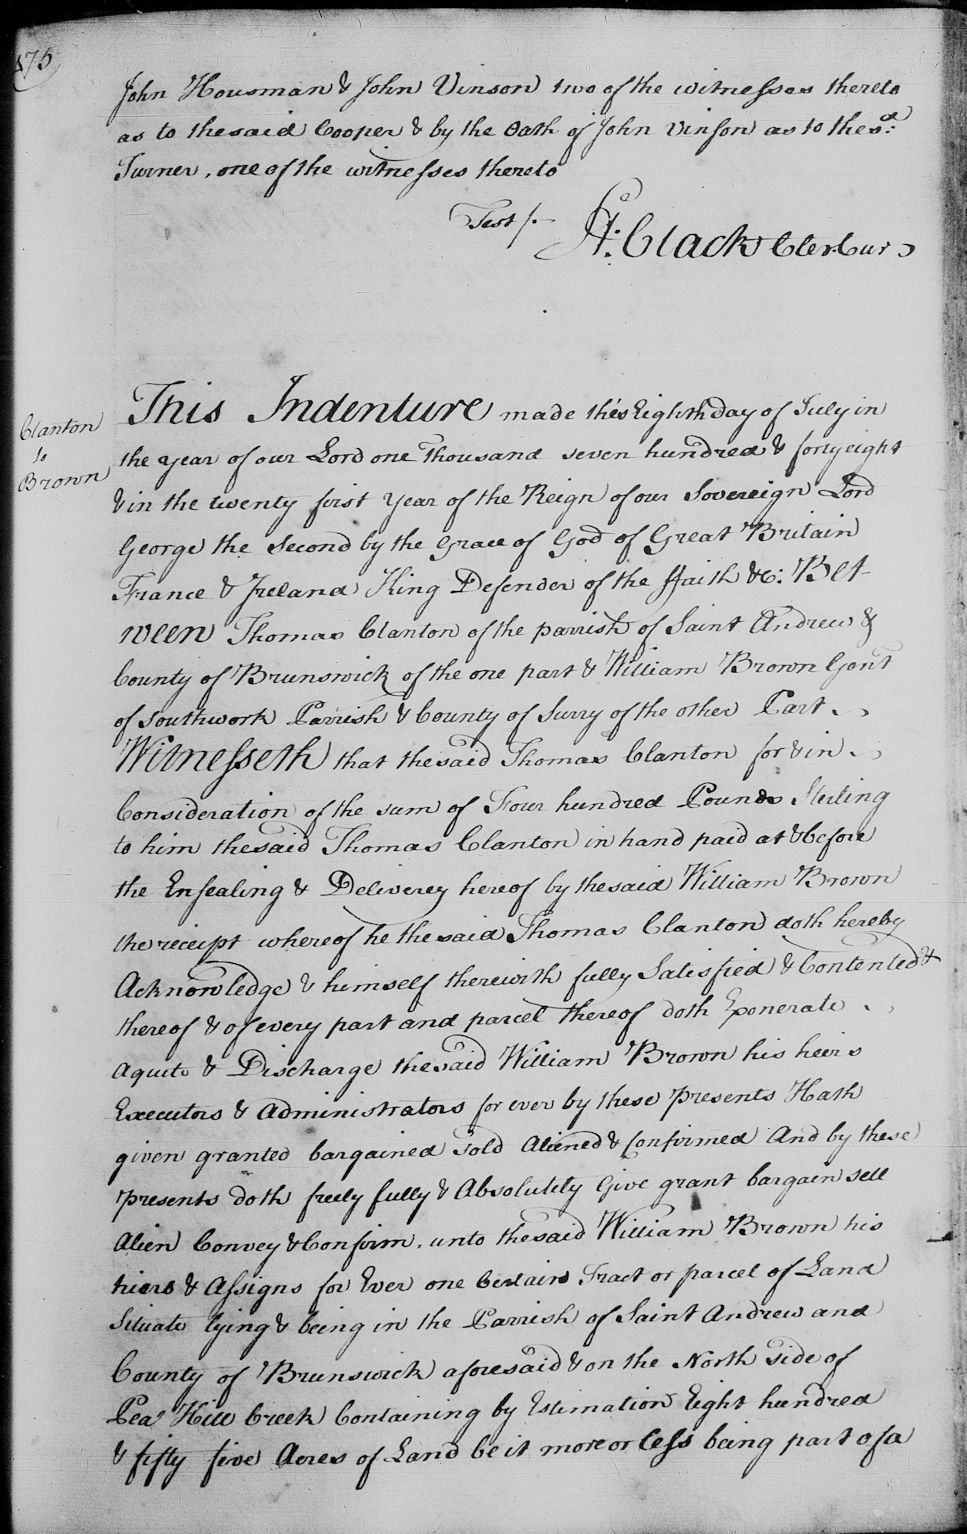 175
John Housman & John Vinson two of the witnesses thereto
as to the said Cooper & by the Oath of John Vinson as to the sd:
Turner, one of the witnesses thereto
Test /. St: Clack Cler Cur
Clanton
to
Brown
This Indenture made this Eighth day of July in
the year of our Lord one Thousand seven hundred & forty eight
& in the twenty first Year of the Reign of our Sovereign Lord
George the Second by the Grace of God of Great Britain
France & Ireland King Defender of the ffaith &c: Bet-
ween Thomas Clanton of the parrish of Saint Andrew &
County of Brunswick of the one part & William Brown Gent
of Southwork Parrish & County of Surry of the other Part
Witnesseth that the said Thomas Clanton for & in
Consideration of the sum of Four hundred Pounds Sterling
to him the said Thomas Clanton in hand paid at & before
the Ensealing & Deliverey hereof by the said William Brown
the receipt whereof he the said Thomas Clanton doth hereby
Acknowledge & himself therewith fully Satisfied & Contented &
thereof & of every part and parcel thereof doth Exonerate
aquite & Discharge the said William Brown his heirs
Executors & administrators for ever by these presents Hath
given granted bargained sold Aliened & confirmed And by these
presents doth freely fully & Absolutely Give grant bargain sell
alien Convey & Confirm, unto the said William Brown his
hiers & Assigns for Ever one Certain Tract or parcel of Land
Situate lying & being in the Parrish of Saint Andrew and
County of Brunswick aforesaid & on the North side of
Pea Hill Creek Containing by Estimation Eight hundred
& fifty five Acres of Land be it more or less being part of a